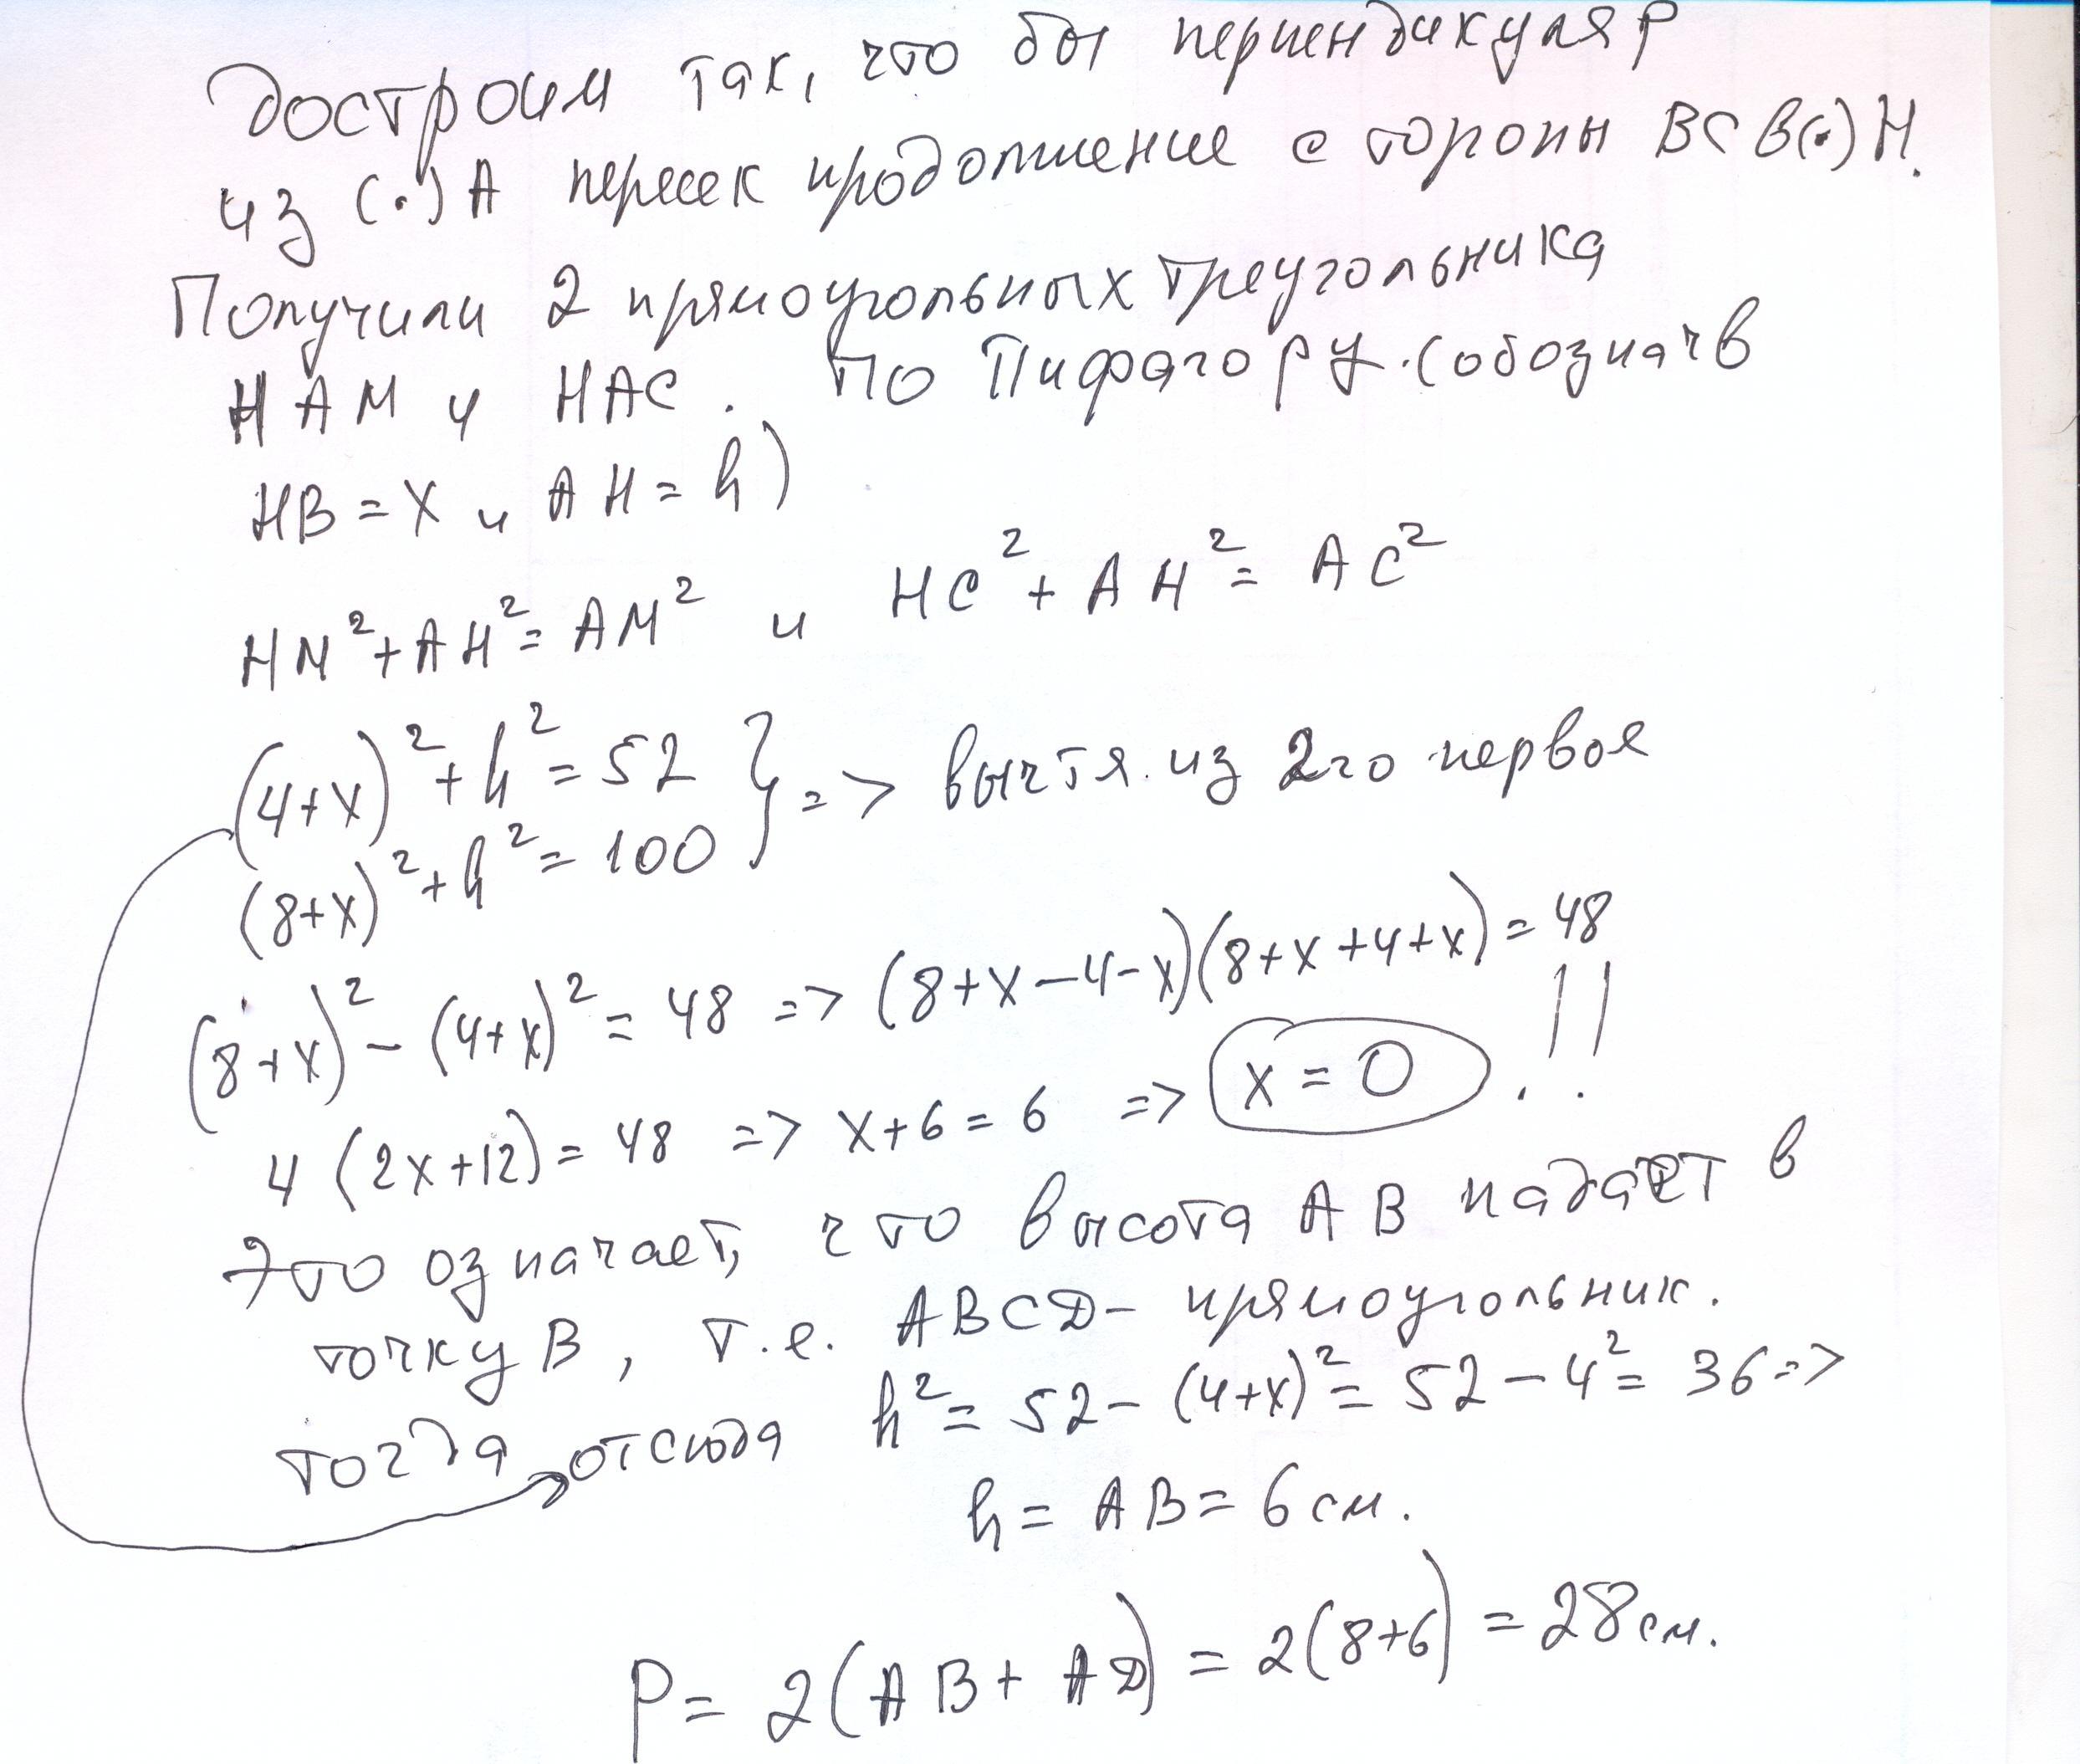 Достроим так, что бы перпендикуляр
из (·) A пересек продолжение стороны BC в (·) H.
Получили 2 прямоугольных треугольника
HAM и HAC. По Пифагору. (обознач в
HB = x и AH = h)
HM² + AH² = AM² и HC² + AH² = AC²
(4+x)² + h² = 52 } => вычтя из 2го первое
(8+x)² + h² = 100
(8+x)² − (4+x)² = 48 => (8+x−4−x)(8+x+4+x) = 48
4(2x+12) = 48 => x+6 = 6 => x = 0 !!
Это означает, что высота AB падает в
точку B, т.е. ABCD – прямоугольник.
тогда отсюда h² = 52 − (4+x)² = 52 − 4² = 36 =>
h = AB = 6 см.
P = 2(AB + AD) = 2(8+6) = 28 см.